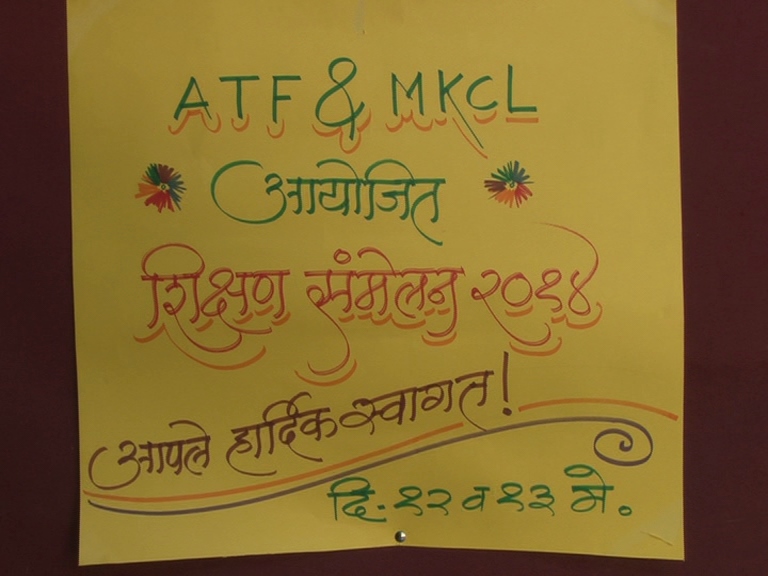 ATF & MKCL
आयोजित
शिक्षण संमेलन २०१४
आपले हार्दिक स्वागत!
दि. १२ व १३ मे.